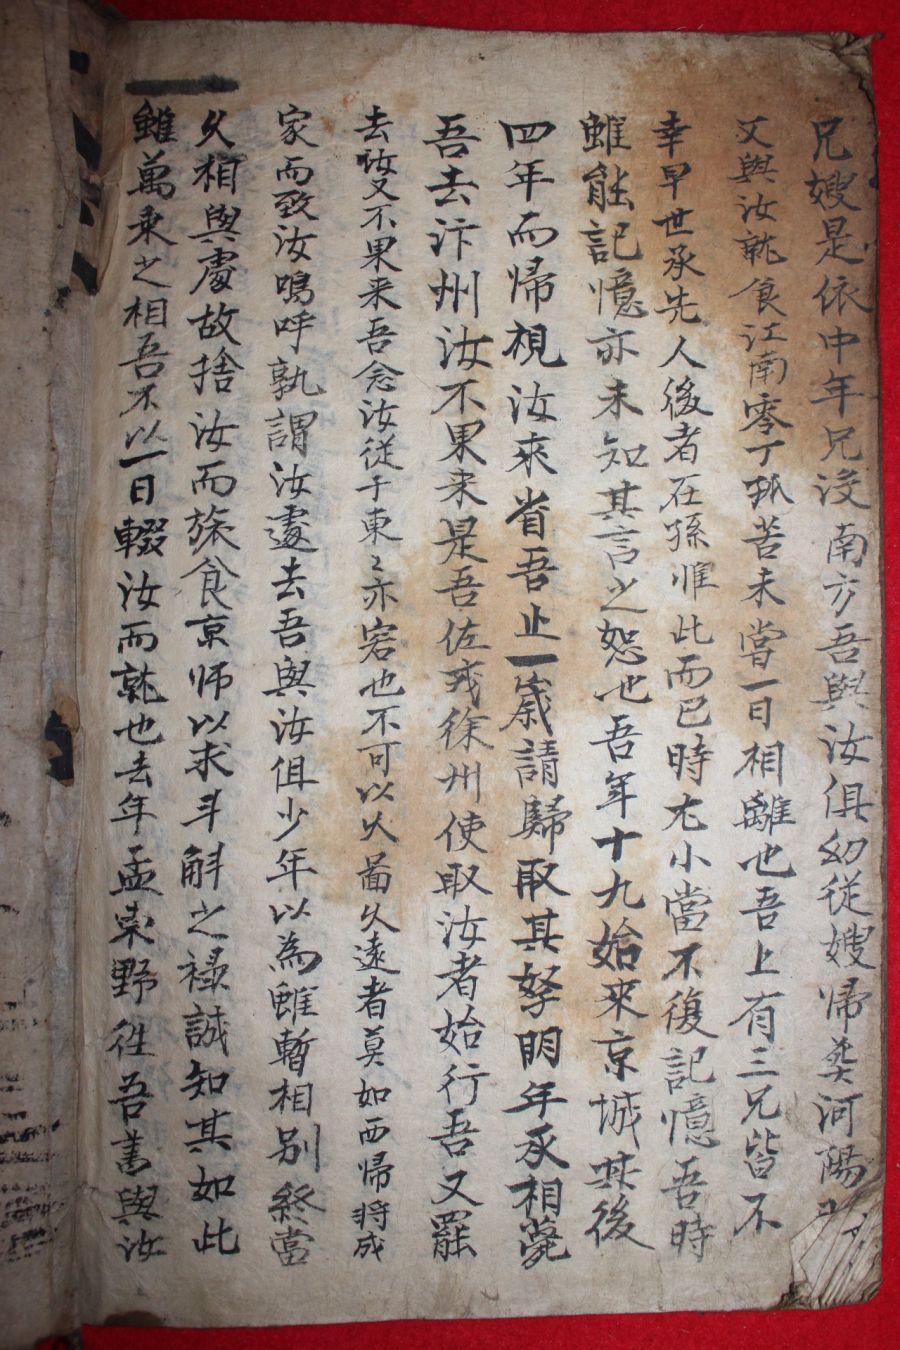 兄嫂是依中年兄没南方吾與汝俱幼從嫂帰葬河陽
又與汝就食江南零丁孤苦未嘗一日相離也吾上有三兄皆不
幸早世承先人後者在孫惟此而已時尤小當不復記憶吾時
雖能記憶亦未知其言之恕也吾年十九始來京城其後
四年而帰視汝來省吾止一歲請歸取其孥明年承相薨
吾去汴州汝不果来是吾佐戎徐州使取汝者始行吾又罷
去汝又不果来吾念汝從于東々亦客也不可以久啚久遠者莫如西帰將成
家而致汝嗚呼孰謂汝遽去吾與汝俱少年以為雖暫相别終當
久相與處故捨汝而旅食京师以求斗斛之禄誠知其如此
雖萬乗之相吾不以一日輟汝而就也去年孟東野徃吾書與汝